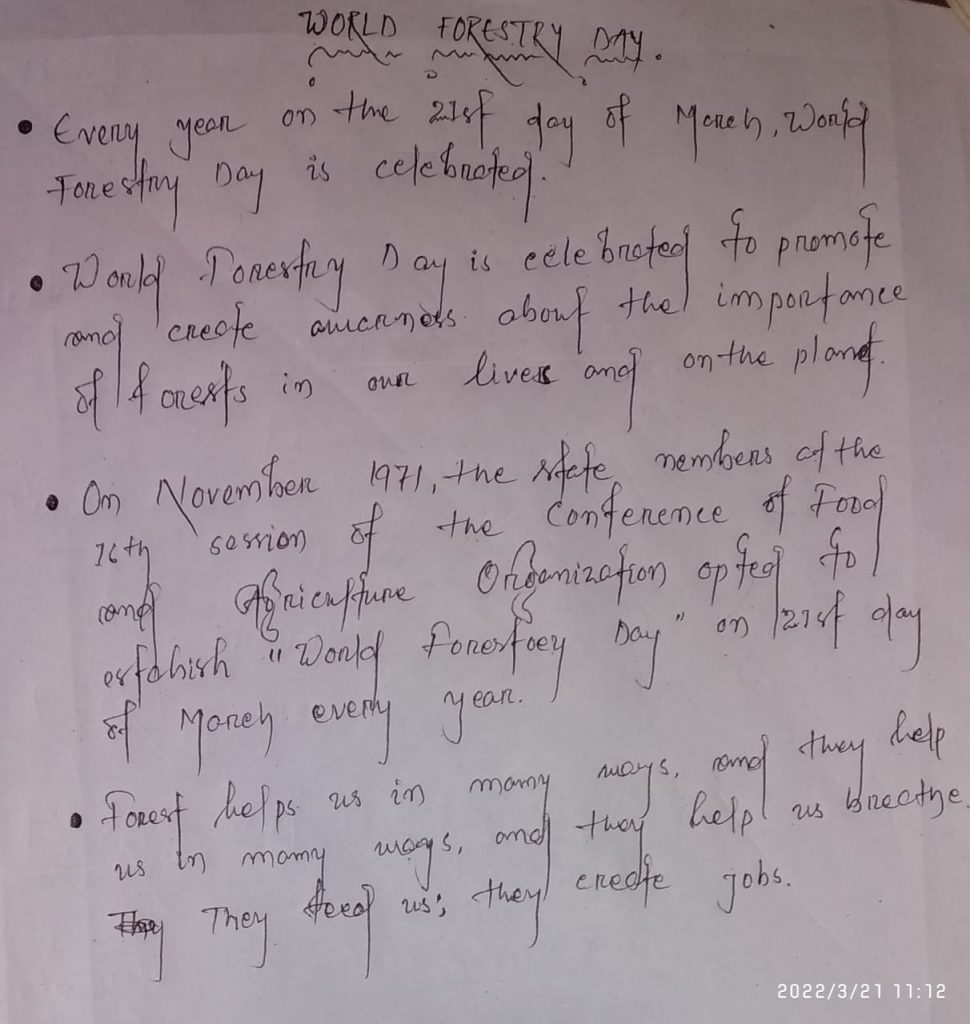 WORLD FORESTRY DAY.
• Every year on the 21st day of March, World
Forestry Day is celebrated.
• World Forestry Day is celebrated to promote
and create awarness about the importance
of forests in our lives and on the planet.
• On November 1971, the state members of the
16th session of the Conference of Food
and Agriculture Organization opted to
estabish "World Forestry Day" on 21st day
of March every year.
• Forest helps us in many ways, and they help
us in many ways, and they help us breathe.
They feed us; they create jobs.
2022/3/21 11:12